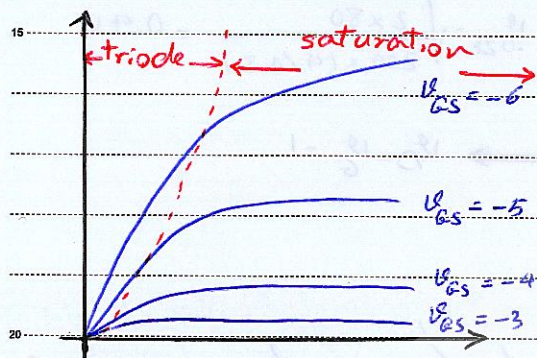 15
triode
saturation
v_GS = -6
v_GS = -5
v_GS = -4
v_GS = -3
20